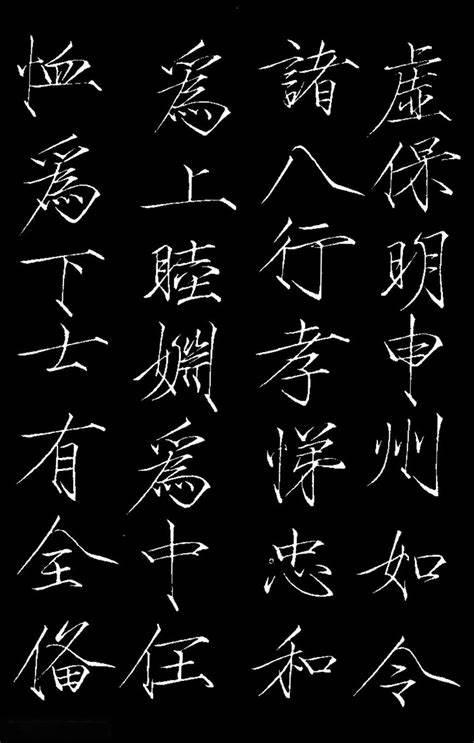 虛保明申州如令
諸八行孝悌忠和
爲上睦婣爲中任
恤爲下士有全備